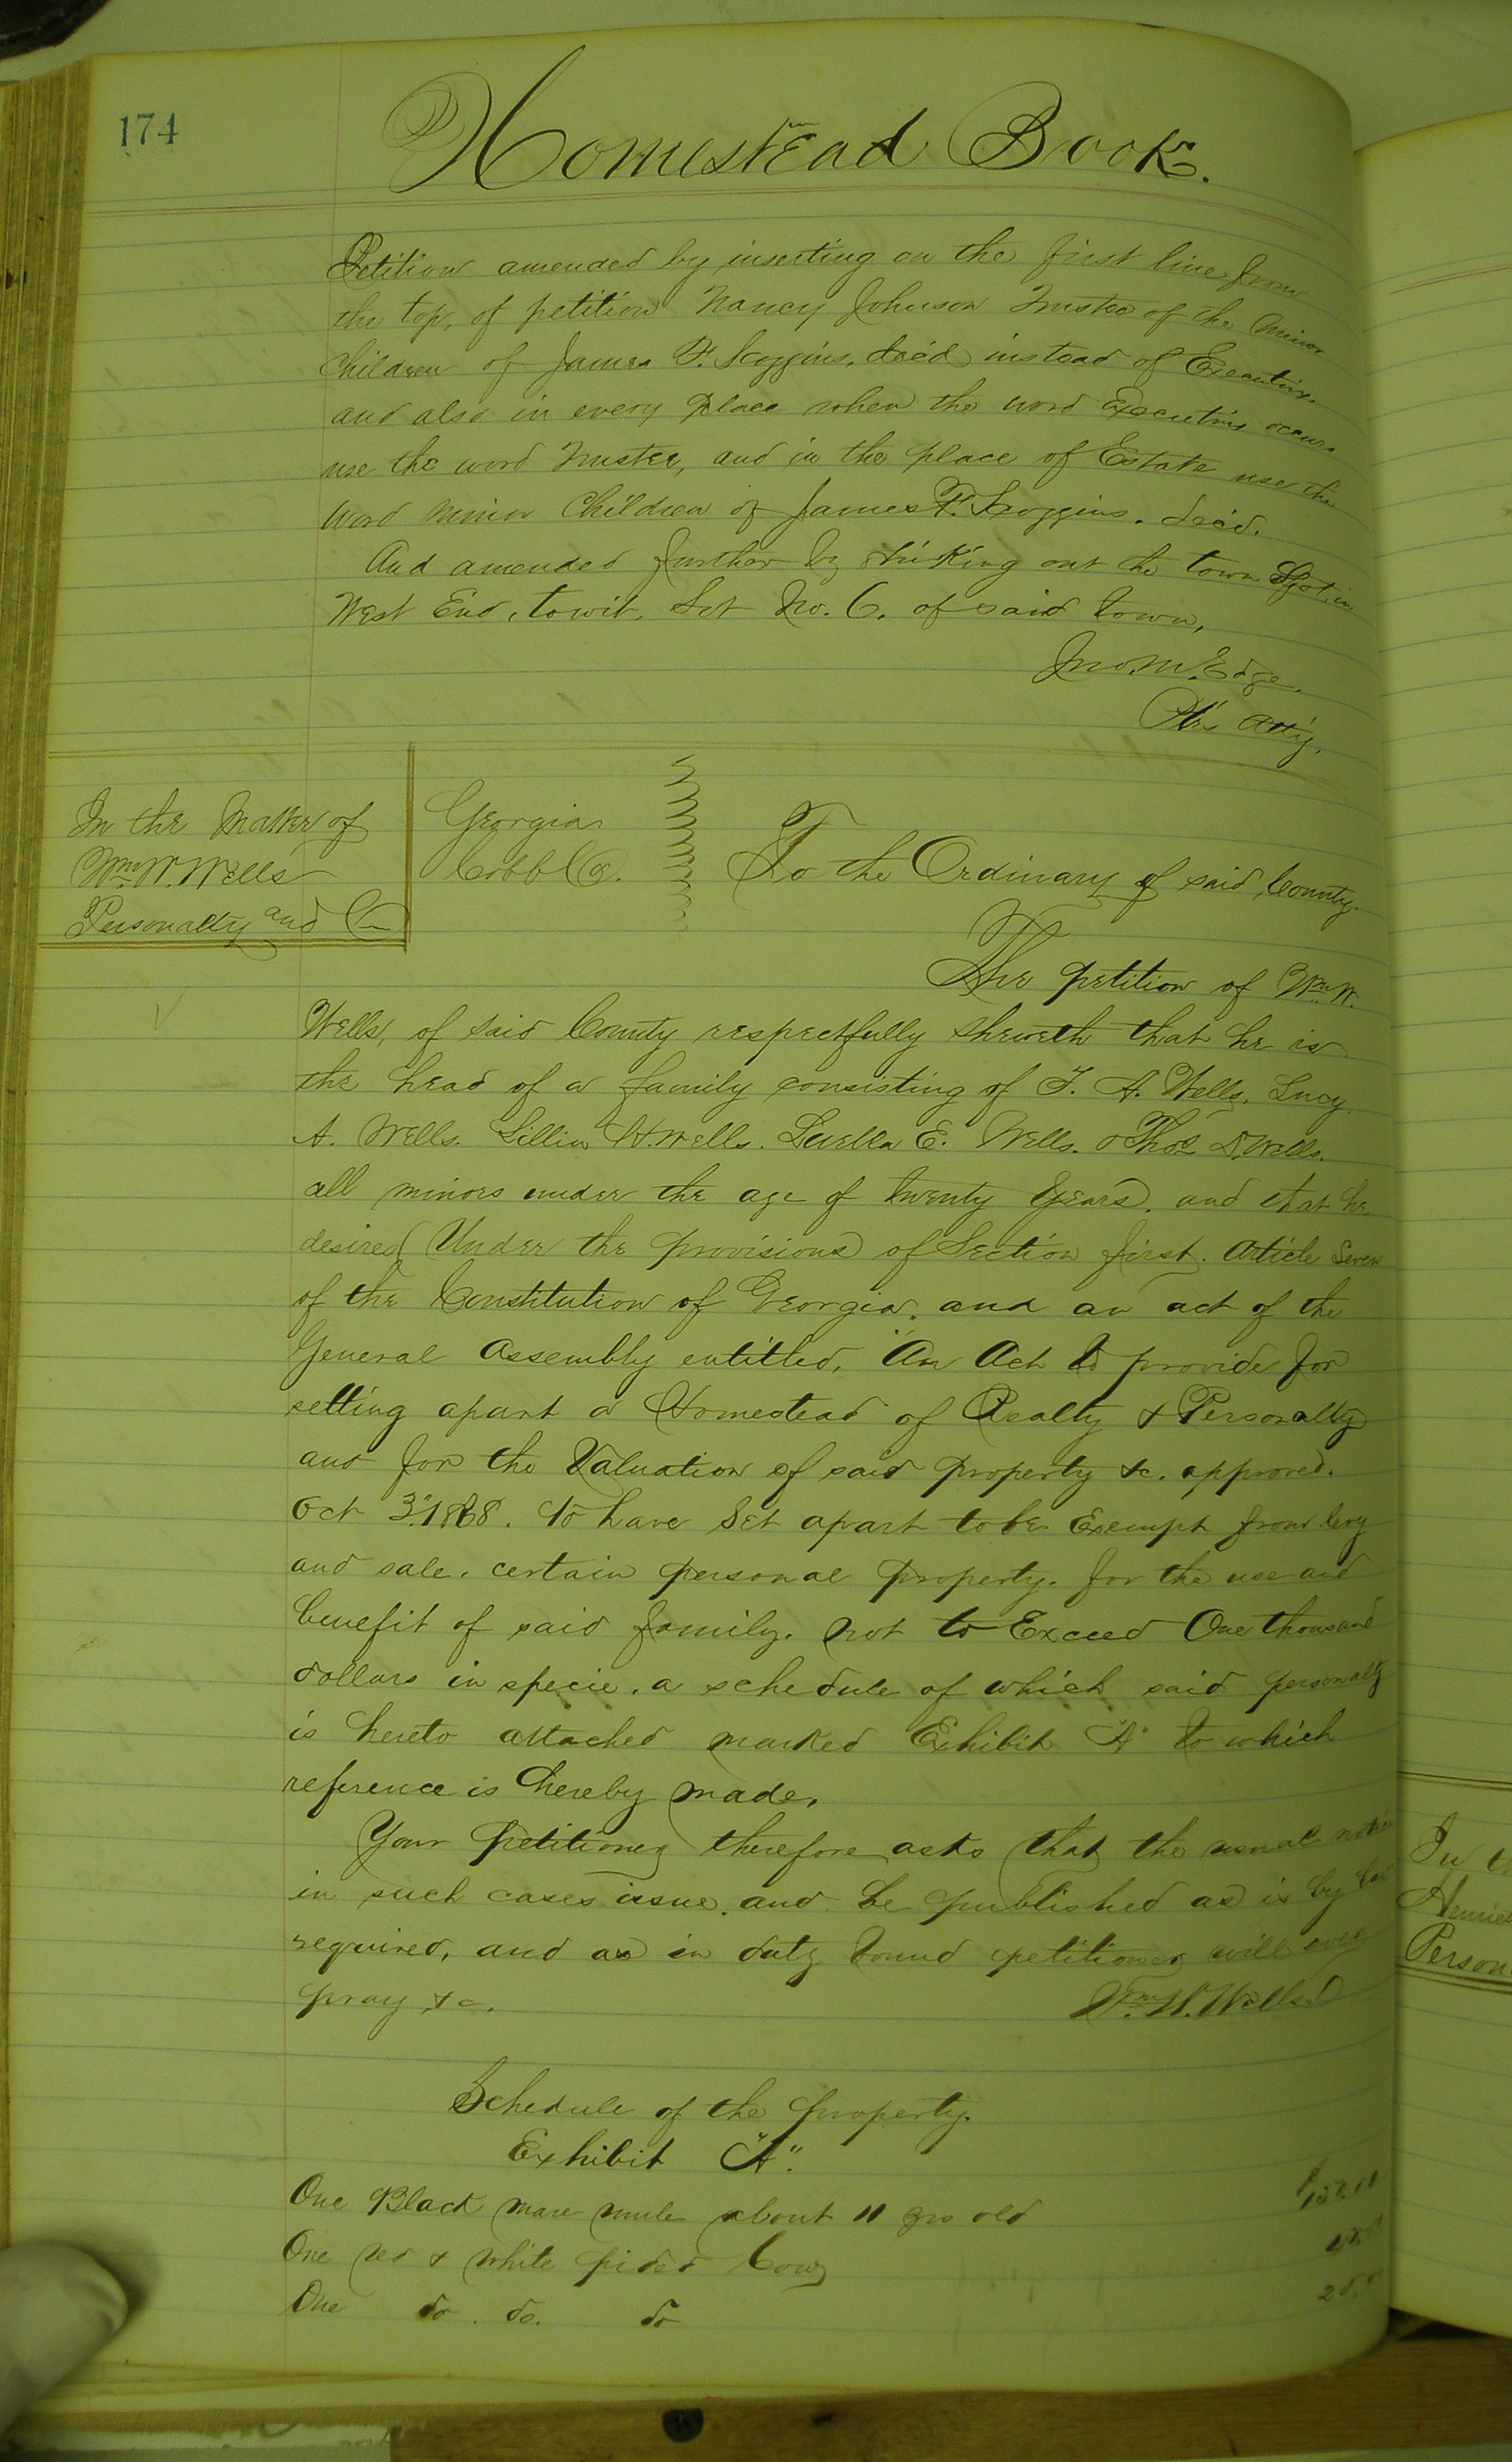 174
Homestead Book.
Petition amended by inserting on the first line from
the top, of petition Nancy Johnson Trustee of the minor
Children of James F. Scoggins, dec'd, instead of Executrix.
and also in every place when the word Executrix occurs
use the word Trustee, and in the place of Estate use the
word minor Children of James F. Scoggins. dec'd.
And amended further by striking out the town Lot in
West End, towit, Lot No. 6. of said town,
Jno. M. Edge.
Atty.
In the Matter of
Wm. W. Wells
Personalty and
Georgia
Cobb Co.
To the Ordinary of said County.
The petition of Wm W.
Wells, of said County respectfully sheweth that he is
the head of a family consisting of A. Wells, Lucy
A. Wells. Lillian H. Wells. Luella E. Wells. & Thos Wells.
all minors under the age of twenty years. and that he
desires Under the provisions of Section first. Article Seven
of the Constitution of Georgia. and an act of the
General Assembly entitled, "An Act to provide for
setting apart a Homestead of Realty & Personalty
and for the Valuation of said property &c. approved.
Oct 3" 1868. to have set apart to be Exempt from levy
and sale. certain personal property. for the use and
benefit of said family. not to Exceed One thousand
dollars in specie. a schedule of which said personalty
is hereto attached marked Exhibit "A" to which
reference is hereby made,
Your petitioner therefore asks that the usual notice
in such cases issue. and be published as is by law
required, and as in duty bound petitioner will ever
pray &c.
Wm. W. Wells
Schedule of the property.
Exhibit "A".
One Black mare mule about 11 yrs old $150.00
One red & white pided Cow
One do. do. do
In
Person